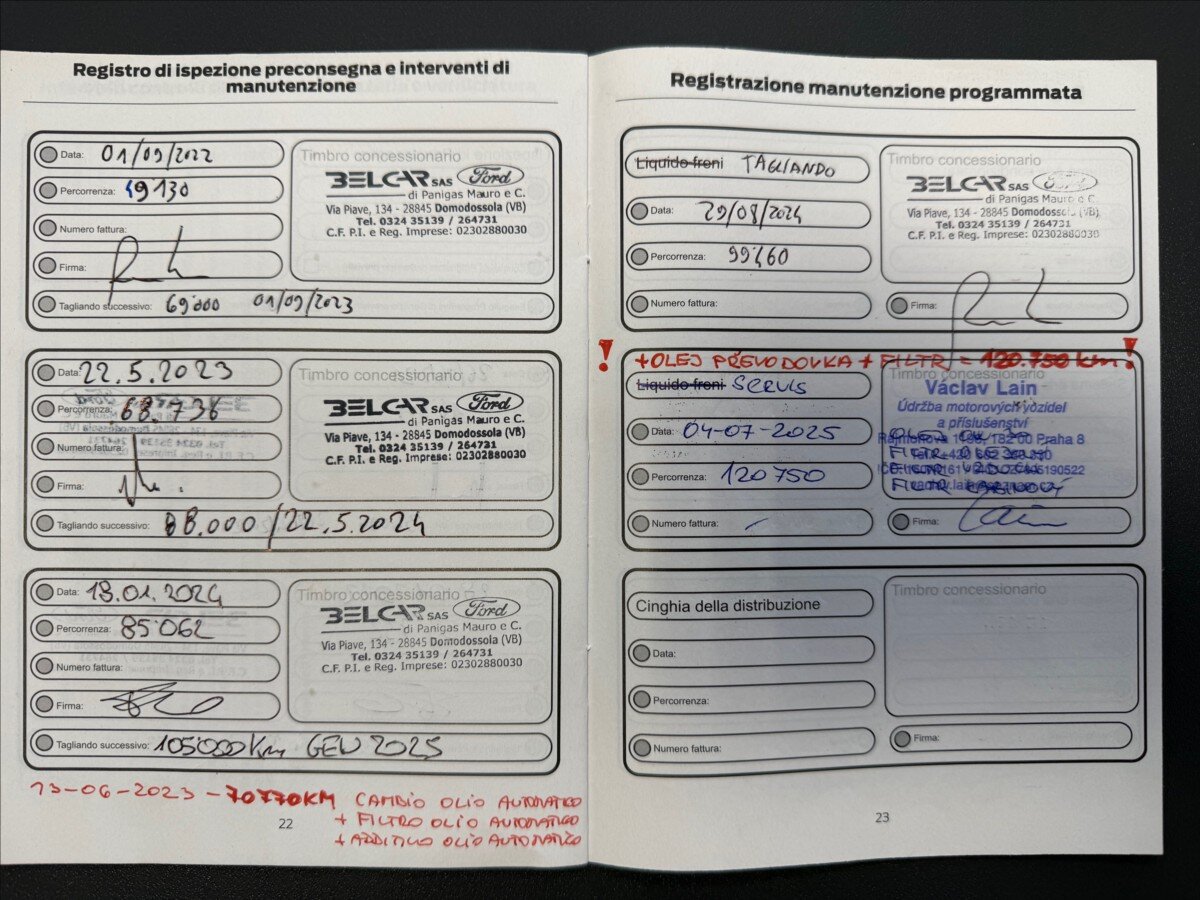 Registro di ispezione preconsegna e interventi di
manutenzione
Data: 01/09/2022
Percorrenza: 49130
Numero fattura:
Firma:
Tagliando successivo: 69.000 01/09/2023
Timbro concessionario
BELCAR SAS Ford
di Panigas Mauro e C.
Via Piave, 134 - 28845 Domodossola (VB)
Tel. 0324 35139 / 264731
C.F. P.I. e Reg. Imprese: 02302880030
Data: 22.5.2023
Percorrenza: 68.736
Numero fattura:
Firma:
Tagliando successivo: 88.000/22.5.2024
Timbro concessionario
BELCAR SAS Ford
di Panigas Mauro e C.
Via Piave, 134 - 28845 Domodossola (VB)
Tel. 0324 35139 / 264731
C.F. P.I. e Reg. Imprese: 02302880030
Data: 18.01.2024
Percorrenza: 85.062
Numero fattura:
Firma:
Tagliando successivo: 105.000 Km GEN 2025
Timbro concessionario
BELCAR SAS Ford
di Panigas Mauro e C.
Via Piave, 134 - 28845 Domodossola (VB)
Tel. 0324 35139 / 264731
C.F. P.I. e Reg. Imprese: 02302880030
13-06-2023 - 70770KM CAMBIO OLIO AUTOMATICO
+ FILTRO OLIO AUTOMATICO
+ ADDITIVO OLIO AUTOMATICO
22
Registrazione manutenzione programmata
Liquido freni TAGLIANDO
Data: 29/08/2024
Percorrenza: 99460
Numero fattura:
Firma:
Timbro concessionario
BELCAR SAS Ford
di Panigas Mauro e C.
Via Piave, 134 - 28845 Domodossola (VB)
Tel. 0324 35139 / 264731
C.F. P.I. e Reg. Imprese: 02302880030
! +OLEJ PŘEVODOVKA + FILTR = 120.750 km !
Liquido freni SERVIS
Data: 04-07-2025
Percorrenza: 120750
Numero fattura: -
Timbro concessionario
Václav Lain
Údržba motorových vozidel
a příslušenství
182 00 Praha 8
FILTR
FILTR
FILTR KABINOVÝ
Firma: Lain
Cinghia della distribuzione
Data:
Percorrenza:
Numero fattura:
Timbro concessionario
Firma:
23